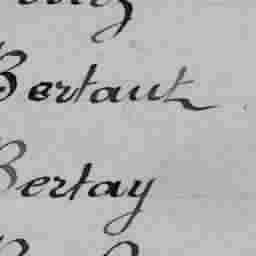 Bertaut
Bertay